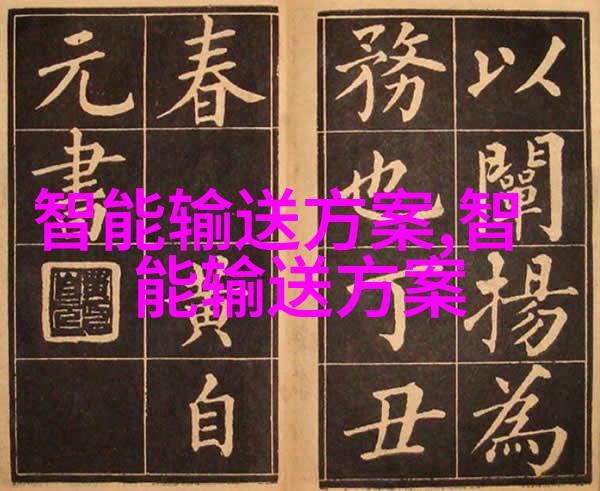 智能输送方案,智
能输送方案
以闡揚為
務也丁丑
春黃自
元書